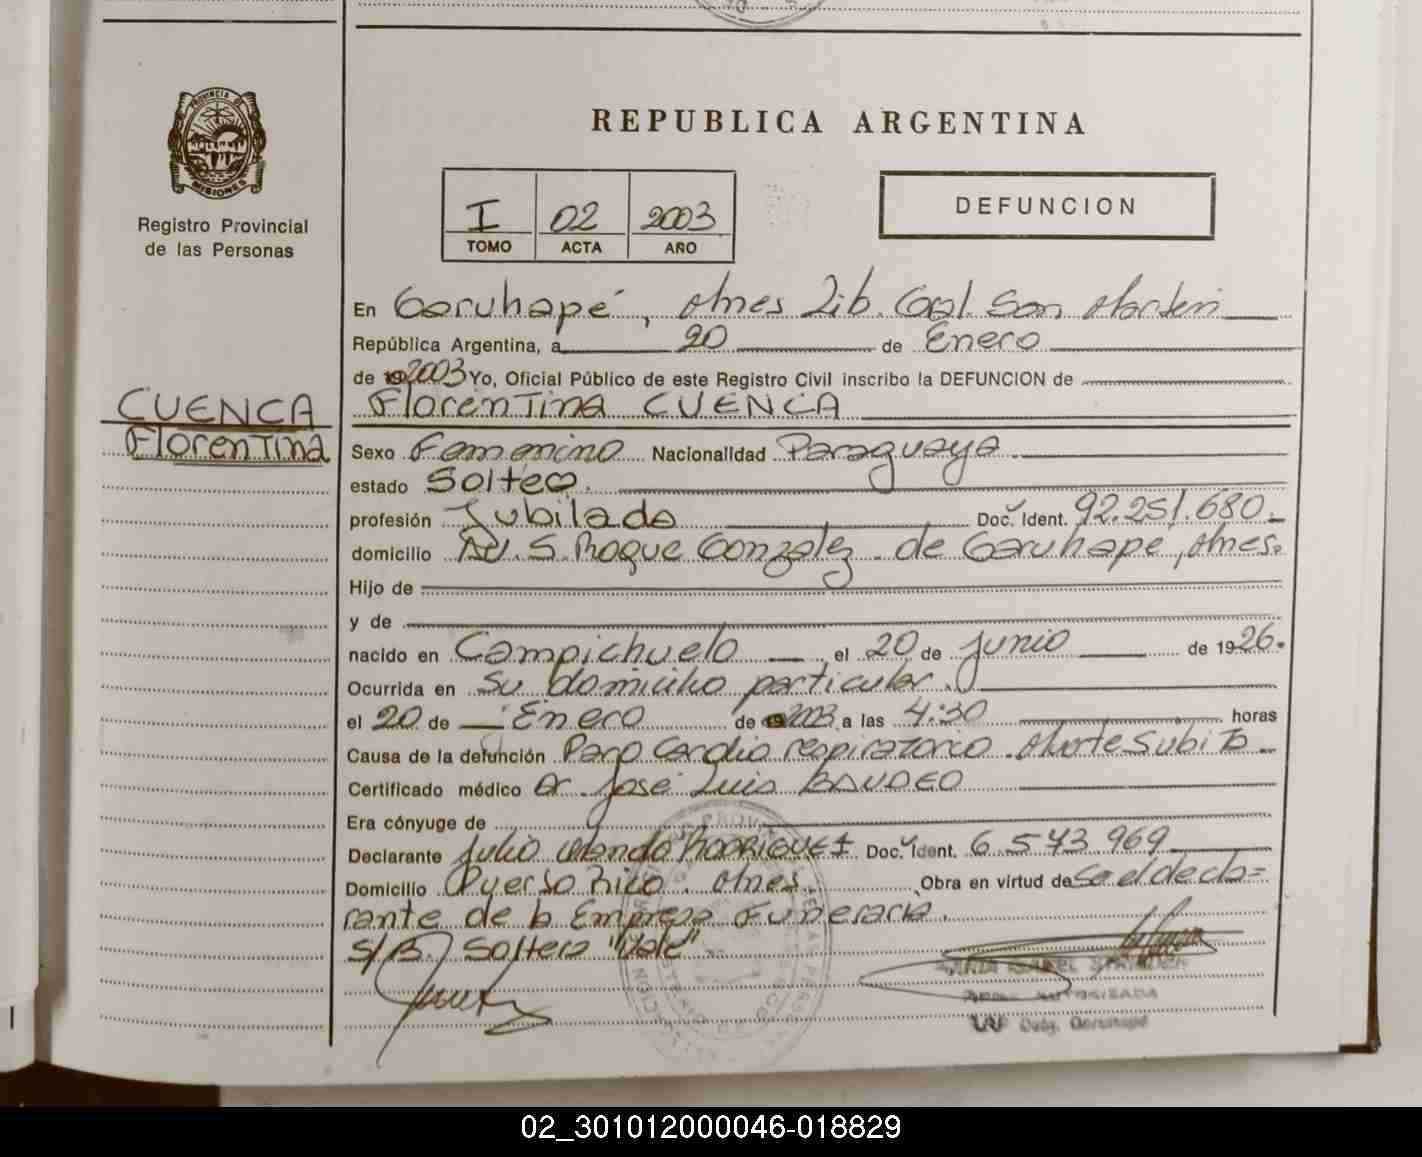 PROVINCIA DE
MISIONES
Registro Provincial
de las Personas
CUENCA
Florentina
REPUBLICA ARGENTINA
I 02 2003
TOMO ACTA AÑO
DEFUNCION
En Garuhapé, Mnes Lib. Gral. San Martín
República Argentina, a 20 de Enero
de 2003 Yo, Oficial Público de este Registro Civil inscribo la DEFUNCION de
Florentina CUENCA
Sexo Femenino Nacionalidad Paraguaya
estado Soltero.
profesión Jubilado Doc. Ident. 92.251.680.
domicilio AV. S. Roque Gonzalez. de Garuhape, Mnes.
Hijo de
y de
nacido en Campichuelo, el 20 de junio de 1926.
Ocurrida en Su domicilio particular.
el 20 de Enero de 2003, a las 4:30 horas
Causa de la defunción Paro Cardio respiratorio. Muerte Subita
Certificado médico Dr. José Luis BAUDEO
Era cónyuge de
Declarante Julio Orlando RODRIGUEZ Doc. Ident. 6.573.969
Domicilio Puerto Rico. Mnes. Obra en virtud de Se el decla=
rante de la Empresa Funeraria.
S/B. Soltera "Vale"
02_301012000046-018829